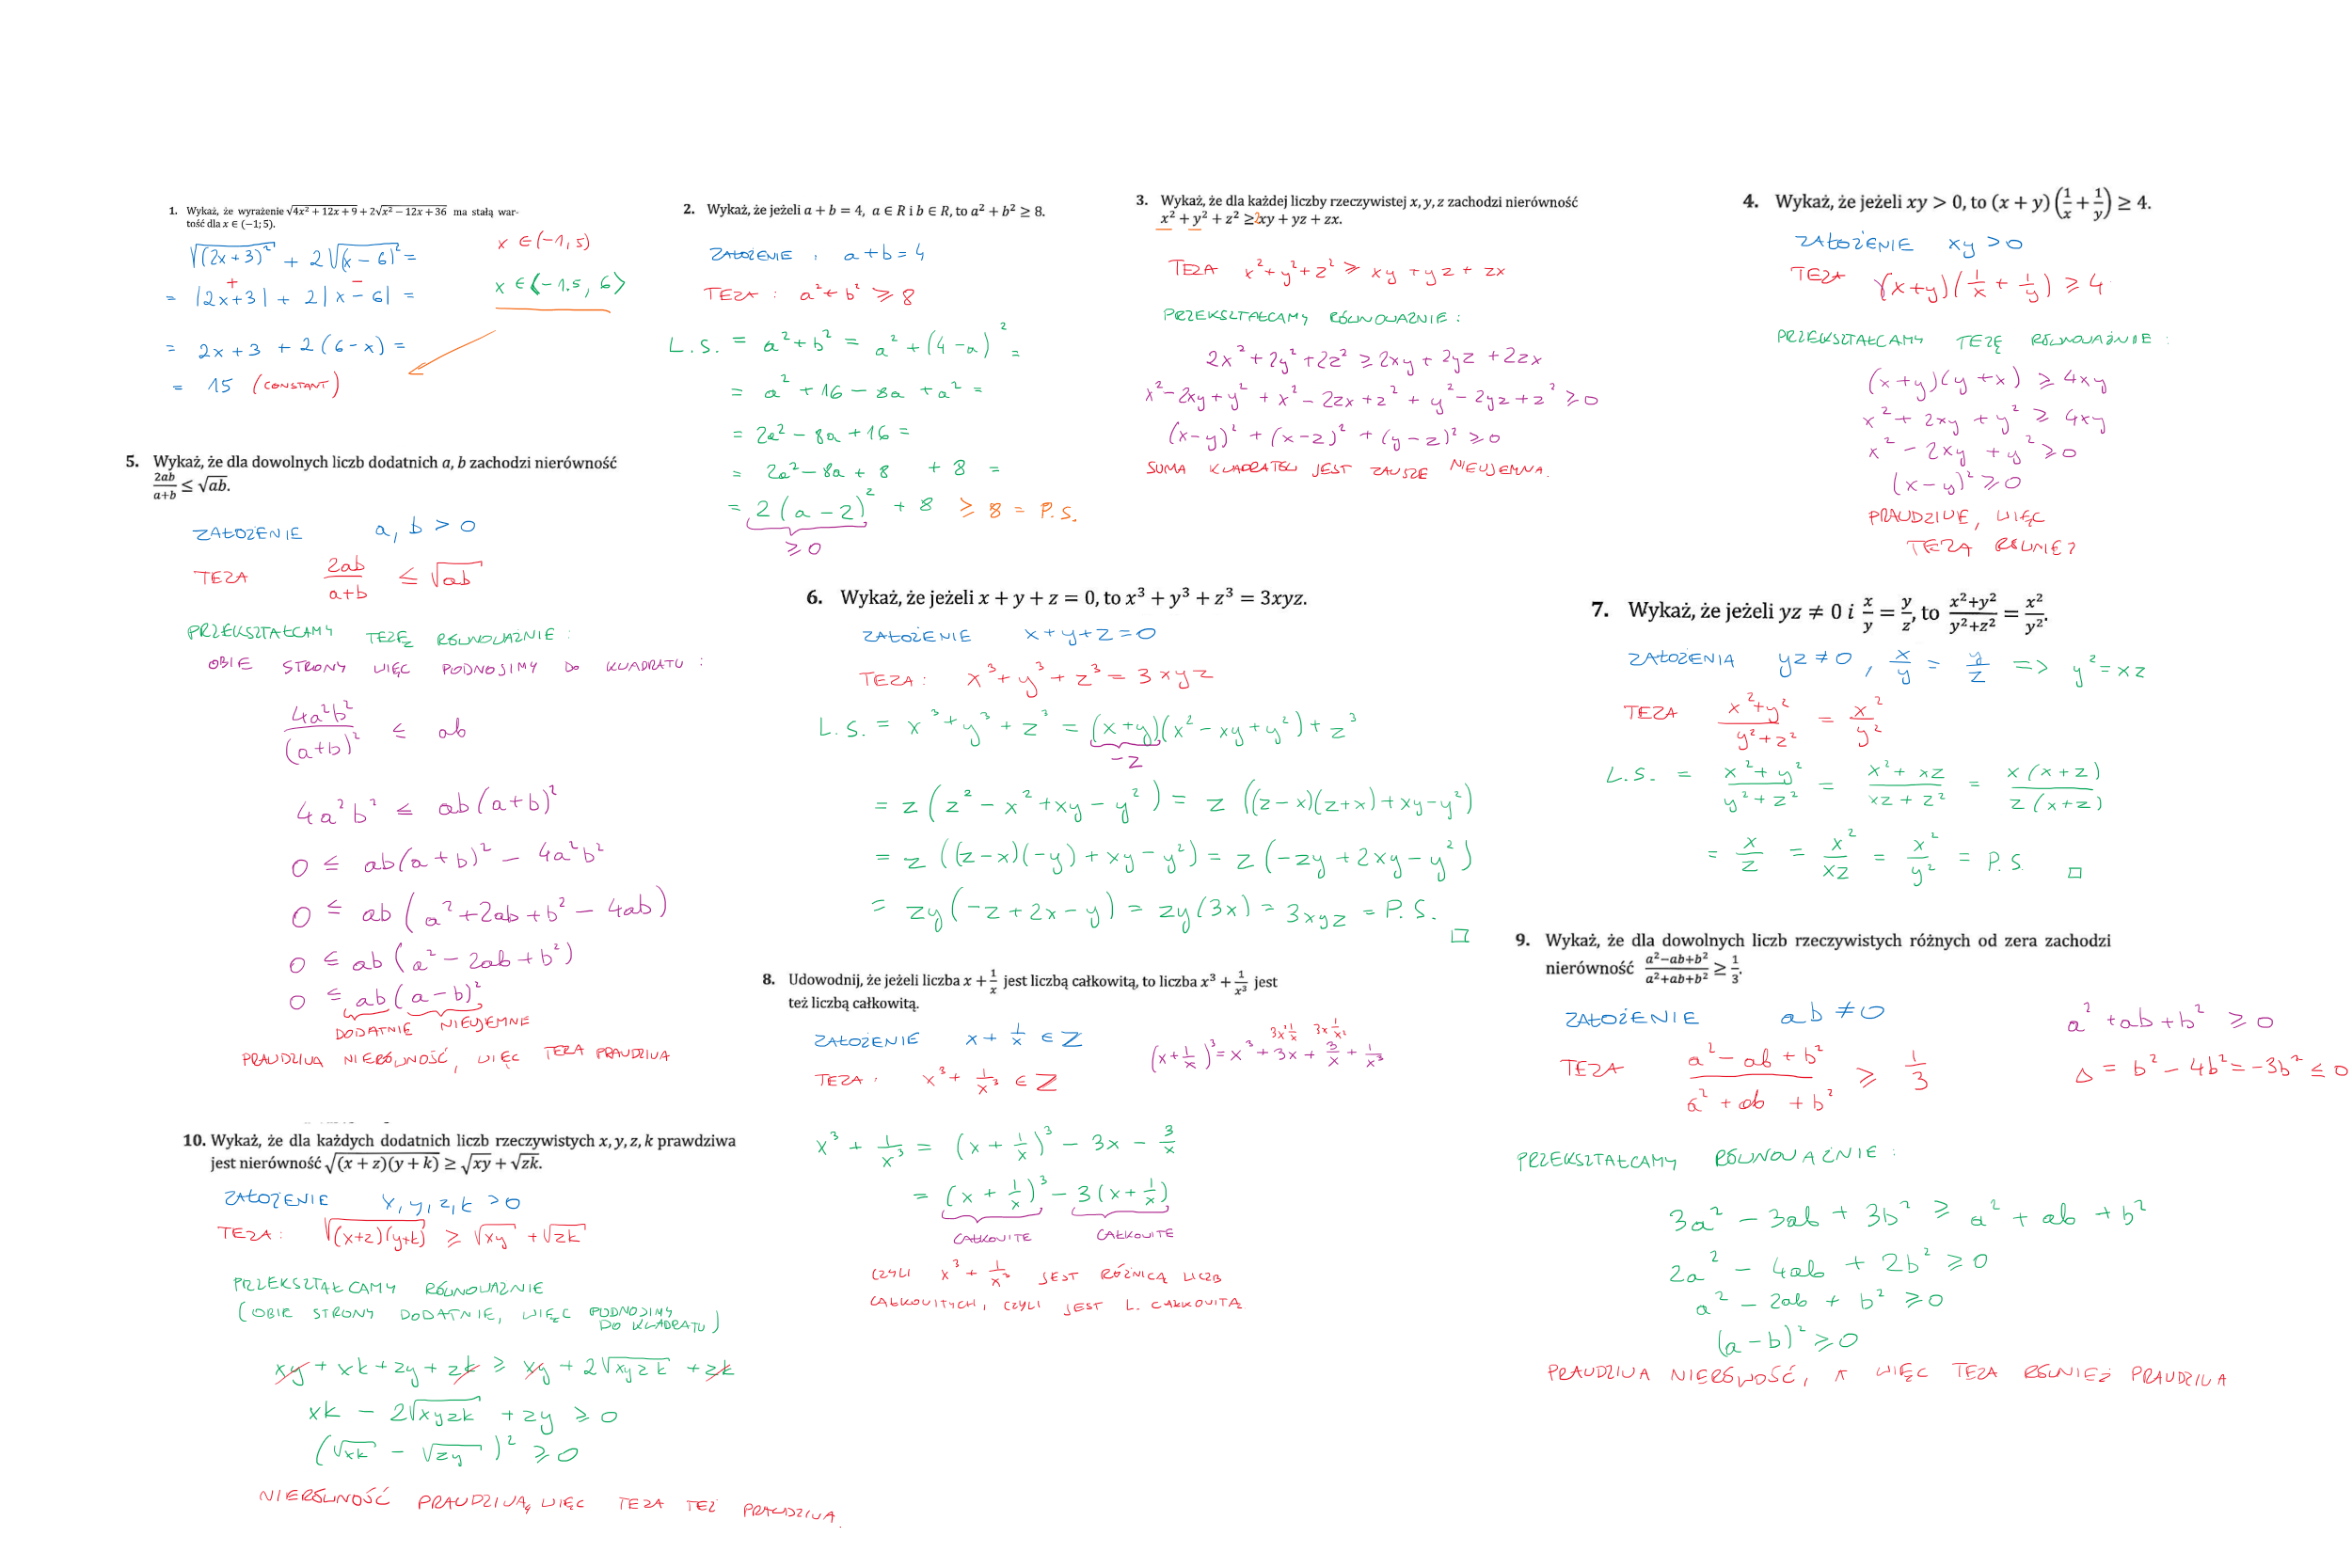 1. Wykaż, że wyrażenie √(4x² + 12x + 9) + 2√(x² − 12x + 36) ma stałą war-
tość dla x ∈ (−1; 5).
√((2x+3)²) + 2√((x − 6)²) =
x ∈ (−1, 5)
= |2x+3| + 2|x − 6| =
+ −
x ∈ ⟨−1.5, 6⟩
= 2x+3 + 2(6−x) =
= 15 (CONSTANT)
2. Wykaż, że jeżeli a + b = 4, a ∈ R i b ∈ R, to a² + b² ≥ 8.
ZAŁOŻENIE : a+b = 4
TEZA : a² + b² ≥ 8
L.S. = a² + b² = a² + (4 − a)² =
= a² + 16 − 8a + a² =
= 2a² − 8a + 16 =
= 2a² − 8a + 8 + 8 =
= 2(a − 2)² + 8 ≥ 8 = P.S.
≥ 0
3. Wykaż, że dla każdej liczby rzeczywistej x, y, z zachodzi nierówność
x² + y² + z² ≥ xy + yz + zx.
TEZA x² + y² + z² ≥ xy + yz + zx
PRZEKSZTAŁCAMY RÓWNOWAŻNIE :
2x² + 2y² + 2z² ≥ 2xy + 2yz + 2zx
x² − 2xy + y² + x² − 2zx + z² + y² − 2yz + z² ≥ 0
(x−y)² + (x−z)² + (y−z)² ≥ 0
SUMA KWADRATÓW JEST ZAWSZE NIEUJEMNA.
4. Wykaż, że jeżeli xy > 0, to (x + y)(1/x + 1/y) ≥ 4.
ZAŁOŻENIE xy > 0
TEZA (x+y)(1/x + 1/y) ≥ 4
PRZEKSZTAŁCAMY TEZĘ RÓWNOWAŻNIE :
(x+y)(y+x) ≥ 4xy
x² + 2xy + y² ≥ 4xy
x² − 2xy + y² ≥ 0
(x−y)² ≥ 0
PRAWDZIWE, WIĘC
TEZA RÓWNIEŻ
5. Wykaż, że dla dowolnych liczb dodatnich a, b zachodzi nierówność
2ab/(a+b) ≤ √ab.
ZAŁOŻENIE a, b > 0
TEZA 2ab/(a+b) ≤ √ab
PRZEKSZTAŁCAMY TEZĘ RÓWNOWAŻNIE :
OBIE STRONY WIĘC PODNOSIMY DO KWADRATU :
4a²b²/(a+b)² ≤ ab
4a²b² ≤ ab(a+b)²
0 ≤ ab(a+b)² − 4a²b²
0 ≤ ab(a² + 2ab + b² − 4ab)
0 ≤ ab(a² − 2ab + b²)
0 ≤ ab(a−b)²
DODATNIE NIEUJEMNE
PRAWDZIWA NIERÓWNOŚĆ, WIĘC TEZA PRAWDZIWA
6. Wykaż, że jeżeli x + y + z = 0, to x³ + y³ + z³ = 3xyz.
ZAŁOŻENIE x+y+z=0
TEZA : x³ + y³ + z³ = 3xyz
L.S. = x³ + y³ + z³ = (x+y)(x² − xy + y²) + z³
−z
= z(z² − x² + xy − y²) = z((z−x)(z+x) + xy − y²)
= z((z−x)(−y) + xy − y²) = z(−zy + 2xy − y²)
= zy(−z + 2x − y) = zy(3x) = 3xyz = P.S. □
7. Wykaż, że jeżeli yz ≠ 0 i x/y = y/z, to (x²+y²)/(y²+z²) = x²/y².
ZAŁOŻENIA yz ≠ 0, x/y = y/z => y² = xz
TEZA (x²+y²)/(y²+z²) = x²/y²
L.S. = (x²+y²)/(y²+z²) = (x²+xz)/(xz+z²) = x(x+z)/z(x+z)
= x/z = x²/xz = x²/y² = P.S. □
8. Udowodnij, że jeżeli liczba x + 1/x jest liczbą całkowitą, to liczba x³ + 1/x³ jest
też liczbą całkowitą.
ZAŁOŻENIE x + 1/x ∈ Z
3x²·1/x 3x·1/x²
(x + 1/x)³ = x³ + 3x + 3/x + 1/x³
TEZA : x³ + 1/x³ ∈ Z
x³ + 1/x³ = (x + 1/x)³ − 3x − 3/x
= (x + 1/x)³ − 3(x + 1/x)
CAŁKOWITE CAŁKOWITE
CZYLI x³ + 1/x³ JEST RÓŻNICĄ LICZB
CAŁKOWITYCH, CZYLI JEST L. CAŁKOWITĄ
9. Wykaż, że dla dowolnych liczb rzeczywistych różnych od zera zachodzi
nierówność (a²−ab+b²)/(a²+ab+b²) ≥ 1/3.
ZAŁOŻENIE ab ≠ 0
a² + ab + b² ≥ 0
TEZA (a² − ab + b²)/(a² + ab + b²) ≥ 1/3
Δ = b² − 4b² = −3b² ≤ 0
PRZEKSZTAŁCAMY RÓWNOWAŻNIE :
3a² − 3ab + 3b² ≥ a² + ab + b²
2a² − 4ab + 2b² ≥ 0
a² − 2ab + b² ≥ 0
(a−b)² ≥ 0
PRAWDZIWA NIERÓWNOŚĆ, WIĘC TEZA RÓWNIEŻ PRAWDZIWA
10. Wykaż, że dla każdych dodatnich liczb rzeczywistych x, y, z, k prawdziwa
jest nierówność √((x + z)(y + k)) ≥ √xy + √zk.
ZAŁOŻENIE x, y, z, k > 0
TEZA : √((x+z)(y+k)) ≥ √xy + √zk
PRZEKSZTAŁCAMY RÓWNOWAŻNIE
(OBIE STRONY DODATNIE, WIĘC PODNOSIMY
DO KWADRATU)
xy + xk + zy + zk ≥ xy + 2√xyzk + zk
xk − 2√xyzk + zy ≥ 0
(√xk − √zy)² ≥ 0
NIERÓWNOŚĆ PRAWDZIWA, WIĘC TEZA TEŻ PRAWDZIWA.